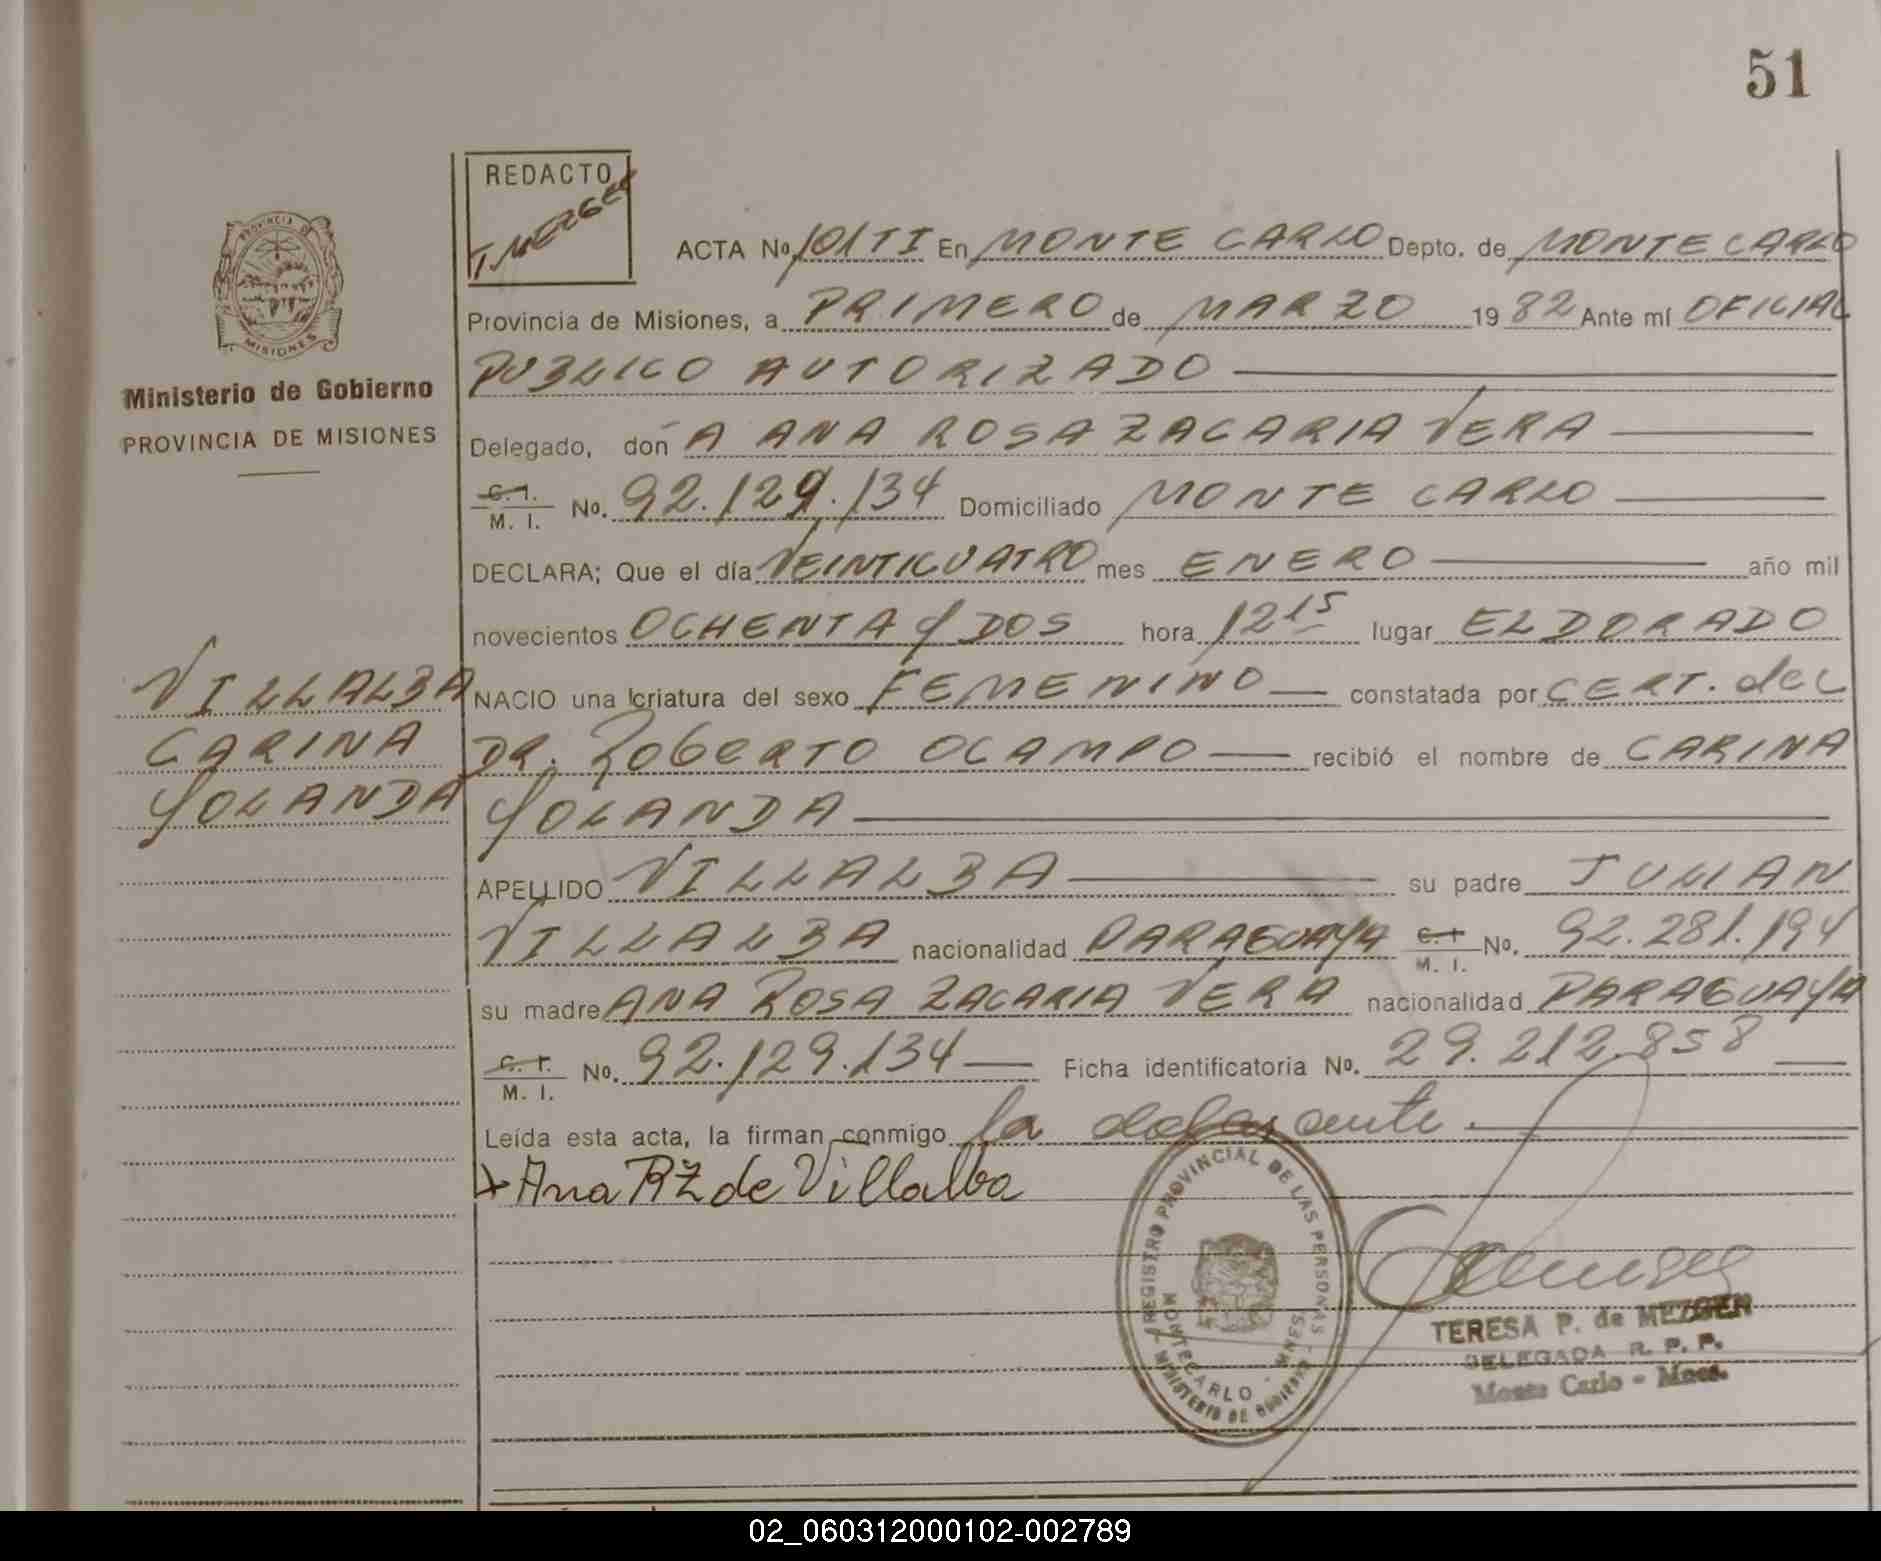 51
REDACTO
T. MEZGER
PROVINCIA DE
MISIONES
Ministerio de Gobierno
PROVINCIA DE MISIONES
VILLALBA
CARINA
YOLANDA
ACTA No. 101TI En MONTE CARLO Depto. de MONTE CARLO
Provincia de Misiones, a PRIMERO de MARZO 1982 Ante mí OFICIAL
PUBLICO AUTORIZADO
Delegado, don A ANA ROSA ZACARIA VERA
C. I. / M. I. No. 92.129.134 Domiciliado MONTE CARLO
DECLARA; Que el día VEINTICUATRO mes ENERO año mil
novecientos OCHENTA Y DOS hora 12 15 lugar ELDORADO
NACIO una criatura del sexo FEMENINO constatada por CERT. del
DR. ROBERTO OCAMPO recibió el nombre de CARINA
YOLANDA
APELLIDO VILLALBA su padre JULIAN
VILLALBA nacionalidad PARAGUAYA C. I / M. I. No. 92.281.194
su madre ANA ROSA ZACARIA VERA nacionalidad PARAGUAYA
C. I. / M. I. No. 92.129.134 Ficha identificatoria No. 29.212.858
Leída esta acta, la firman conmigo la
Ana RZ de Villalba
REGISTRO PROVINCIAL DE LAS PERSONAS
MINISTERIO DE GOBIERNO
MONTECARLO - MNES.
TERESA P. de MEZGER
DELEGADA R. P. P.
Monte Carlo - Mnes.
02_060312000102-002789